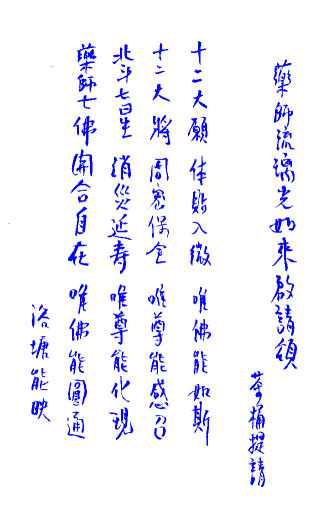 藥師琉璃光如來啟請頌
茶桶提請
十二大願 体貼入微 唯佛能如斯
十二大將 周密保全 唯尊能感召
北斗七星 消災延壽 唯尊能化現
藥師七佛 開合自在 唯佛能圓通
洛塘能映